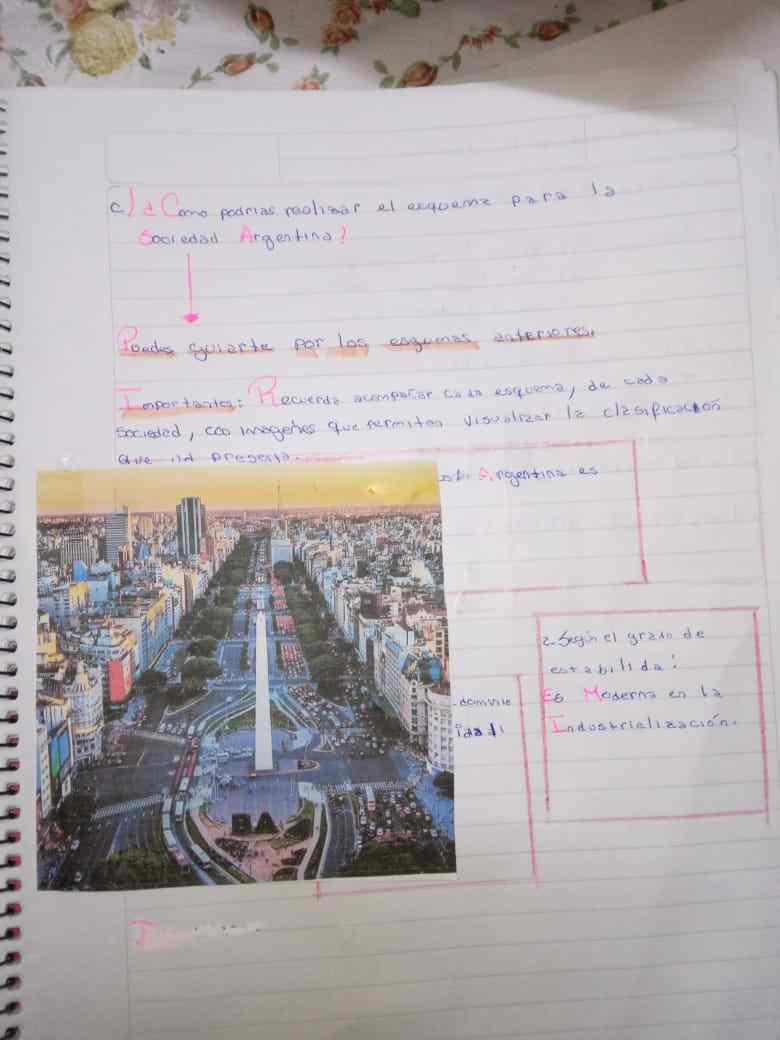 c) ¿Como podrias realizar el esquema para la
Sociedad Argentina?
Puedes guiarte por los esquemas anteriores.
Importantes: Recuerda acompañar cada esquema, de cada
sociedad, con imagenes que permiten visualizar la clasificación
que presenta.
Argentina es
2-Según el grado de
estabilida:
Es Moderna en la
Industrialización.
BA